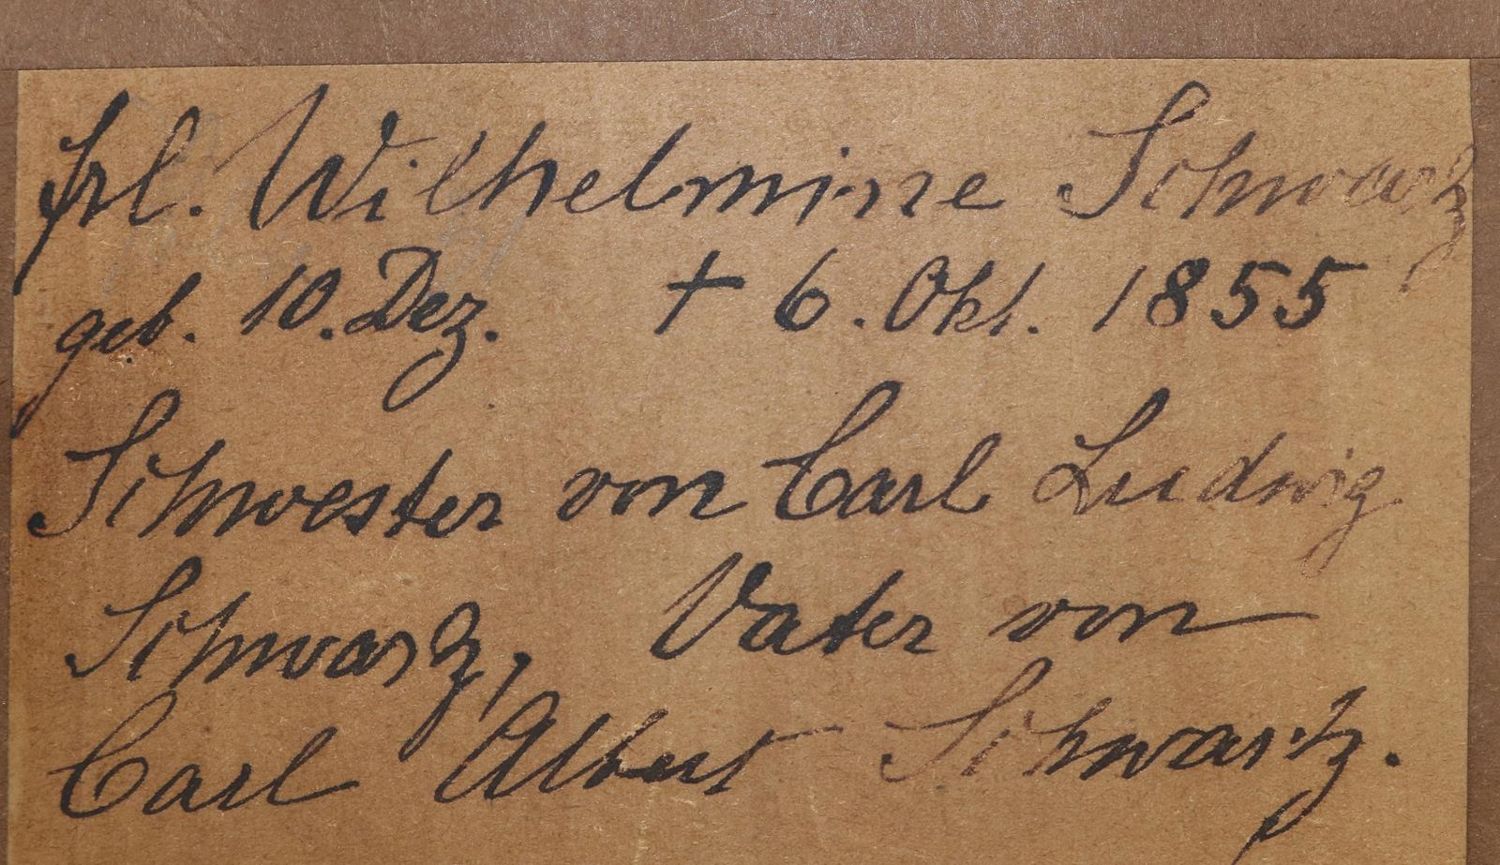 Frl. Wilhelmine Schwarz
geb. 10. Dez. † 6. Okt. 1855
Schwester von Carl Ludwig
Schwarz, Vater von
Carl Albert Schwartz.